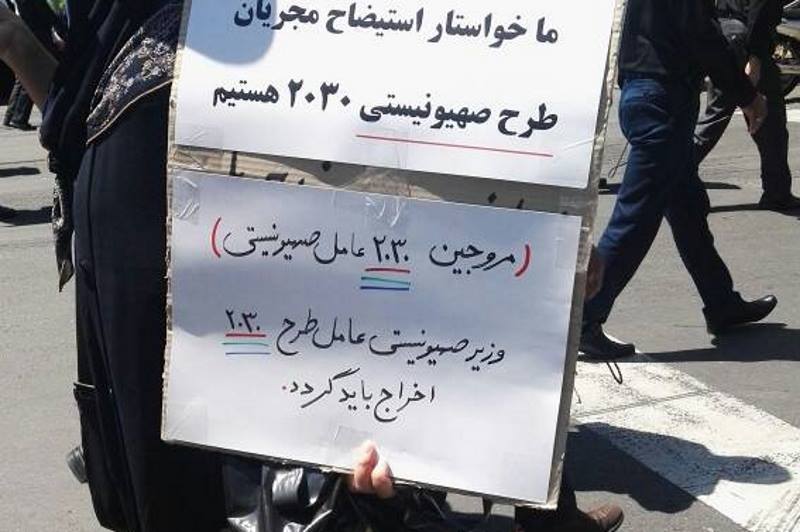 ما خواستار استیضاح مجریان
طرح صهیونیستی ۲۰۳۰ هستیم
(مروجین ۲۰۳۰ عامل صهیونیستی)
وزیر صهیونیستی عامل طرح ۲۰۳۰
اخراج باید گردد.